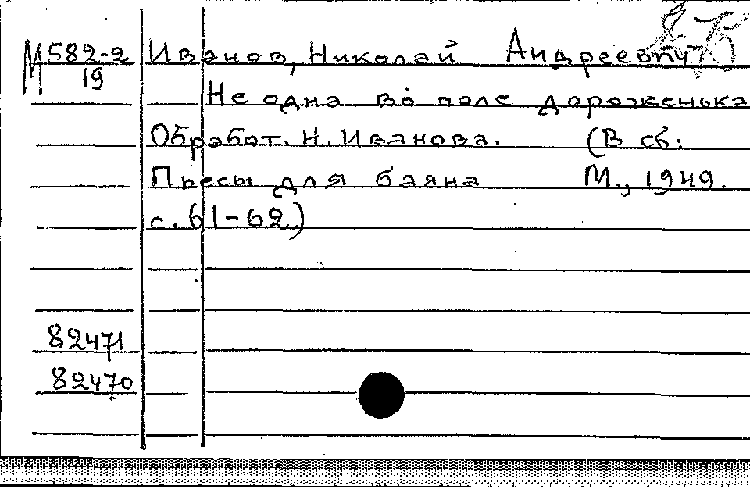 М 582-2 Иванов, Николай Андреевич
19
Не одна во поле дороженька
Обработ. Н. Иванова. (В сб:
Пьесы для баяна М., 1949.
с. 61-62)
82471
82470